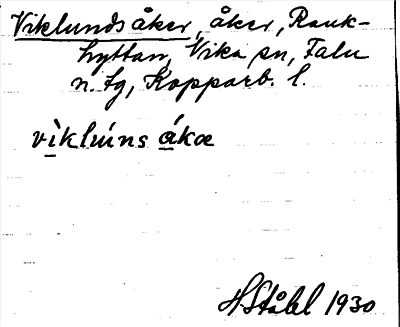 Viklunds åker, åker, Rauk-
hyttan, Vika sn, Falu
n. tg, Kopparb. l.
vìklúns ákæ
HStåhl 1930